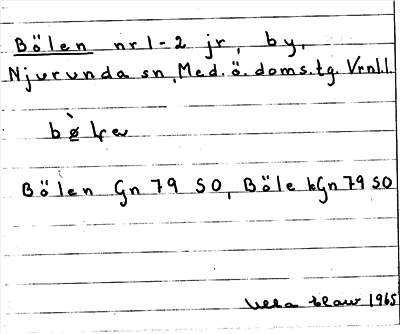 Bölen nr 1-2 jr, by,
Njurunda sn, Med. ö. doms.tg. Vrnl.l.
Bölen Gn 79 SO, Böle kGn 79 SO
1965